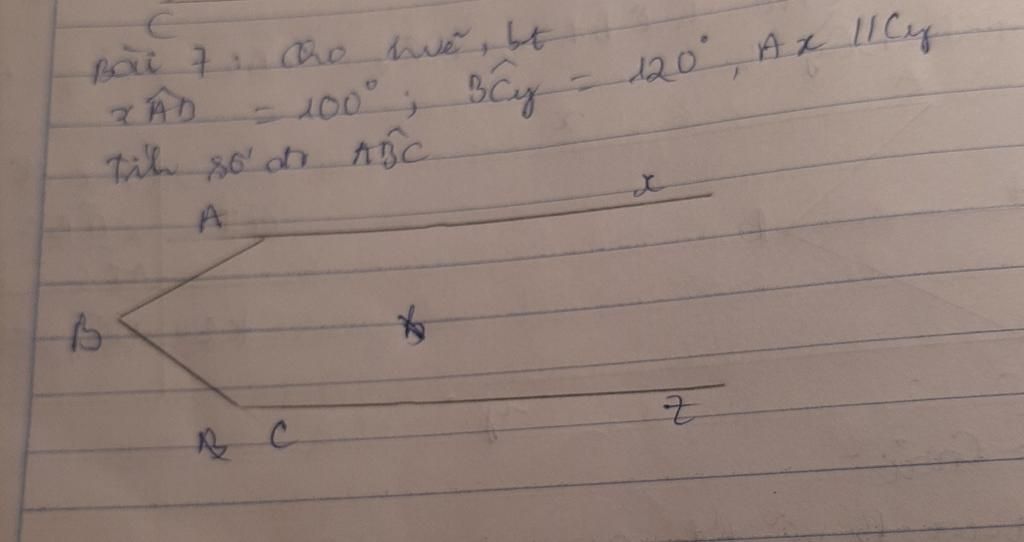 C
Bài 7 : Cho hvẽ, bt
xÂB = 100° ; BĈy = 120° , Ax // Cy
tính số đo AB̂C
A
x
B
C
z